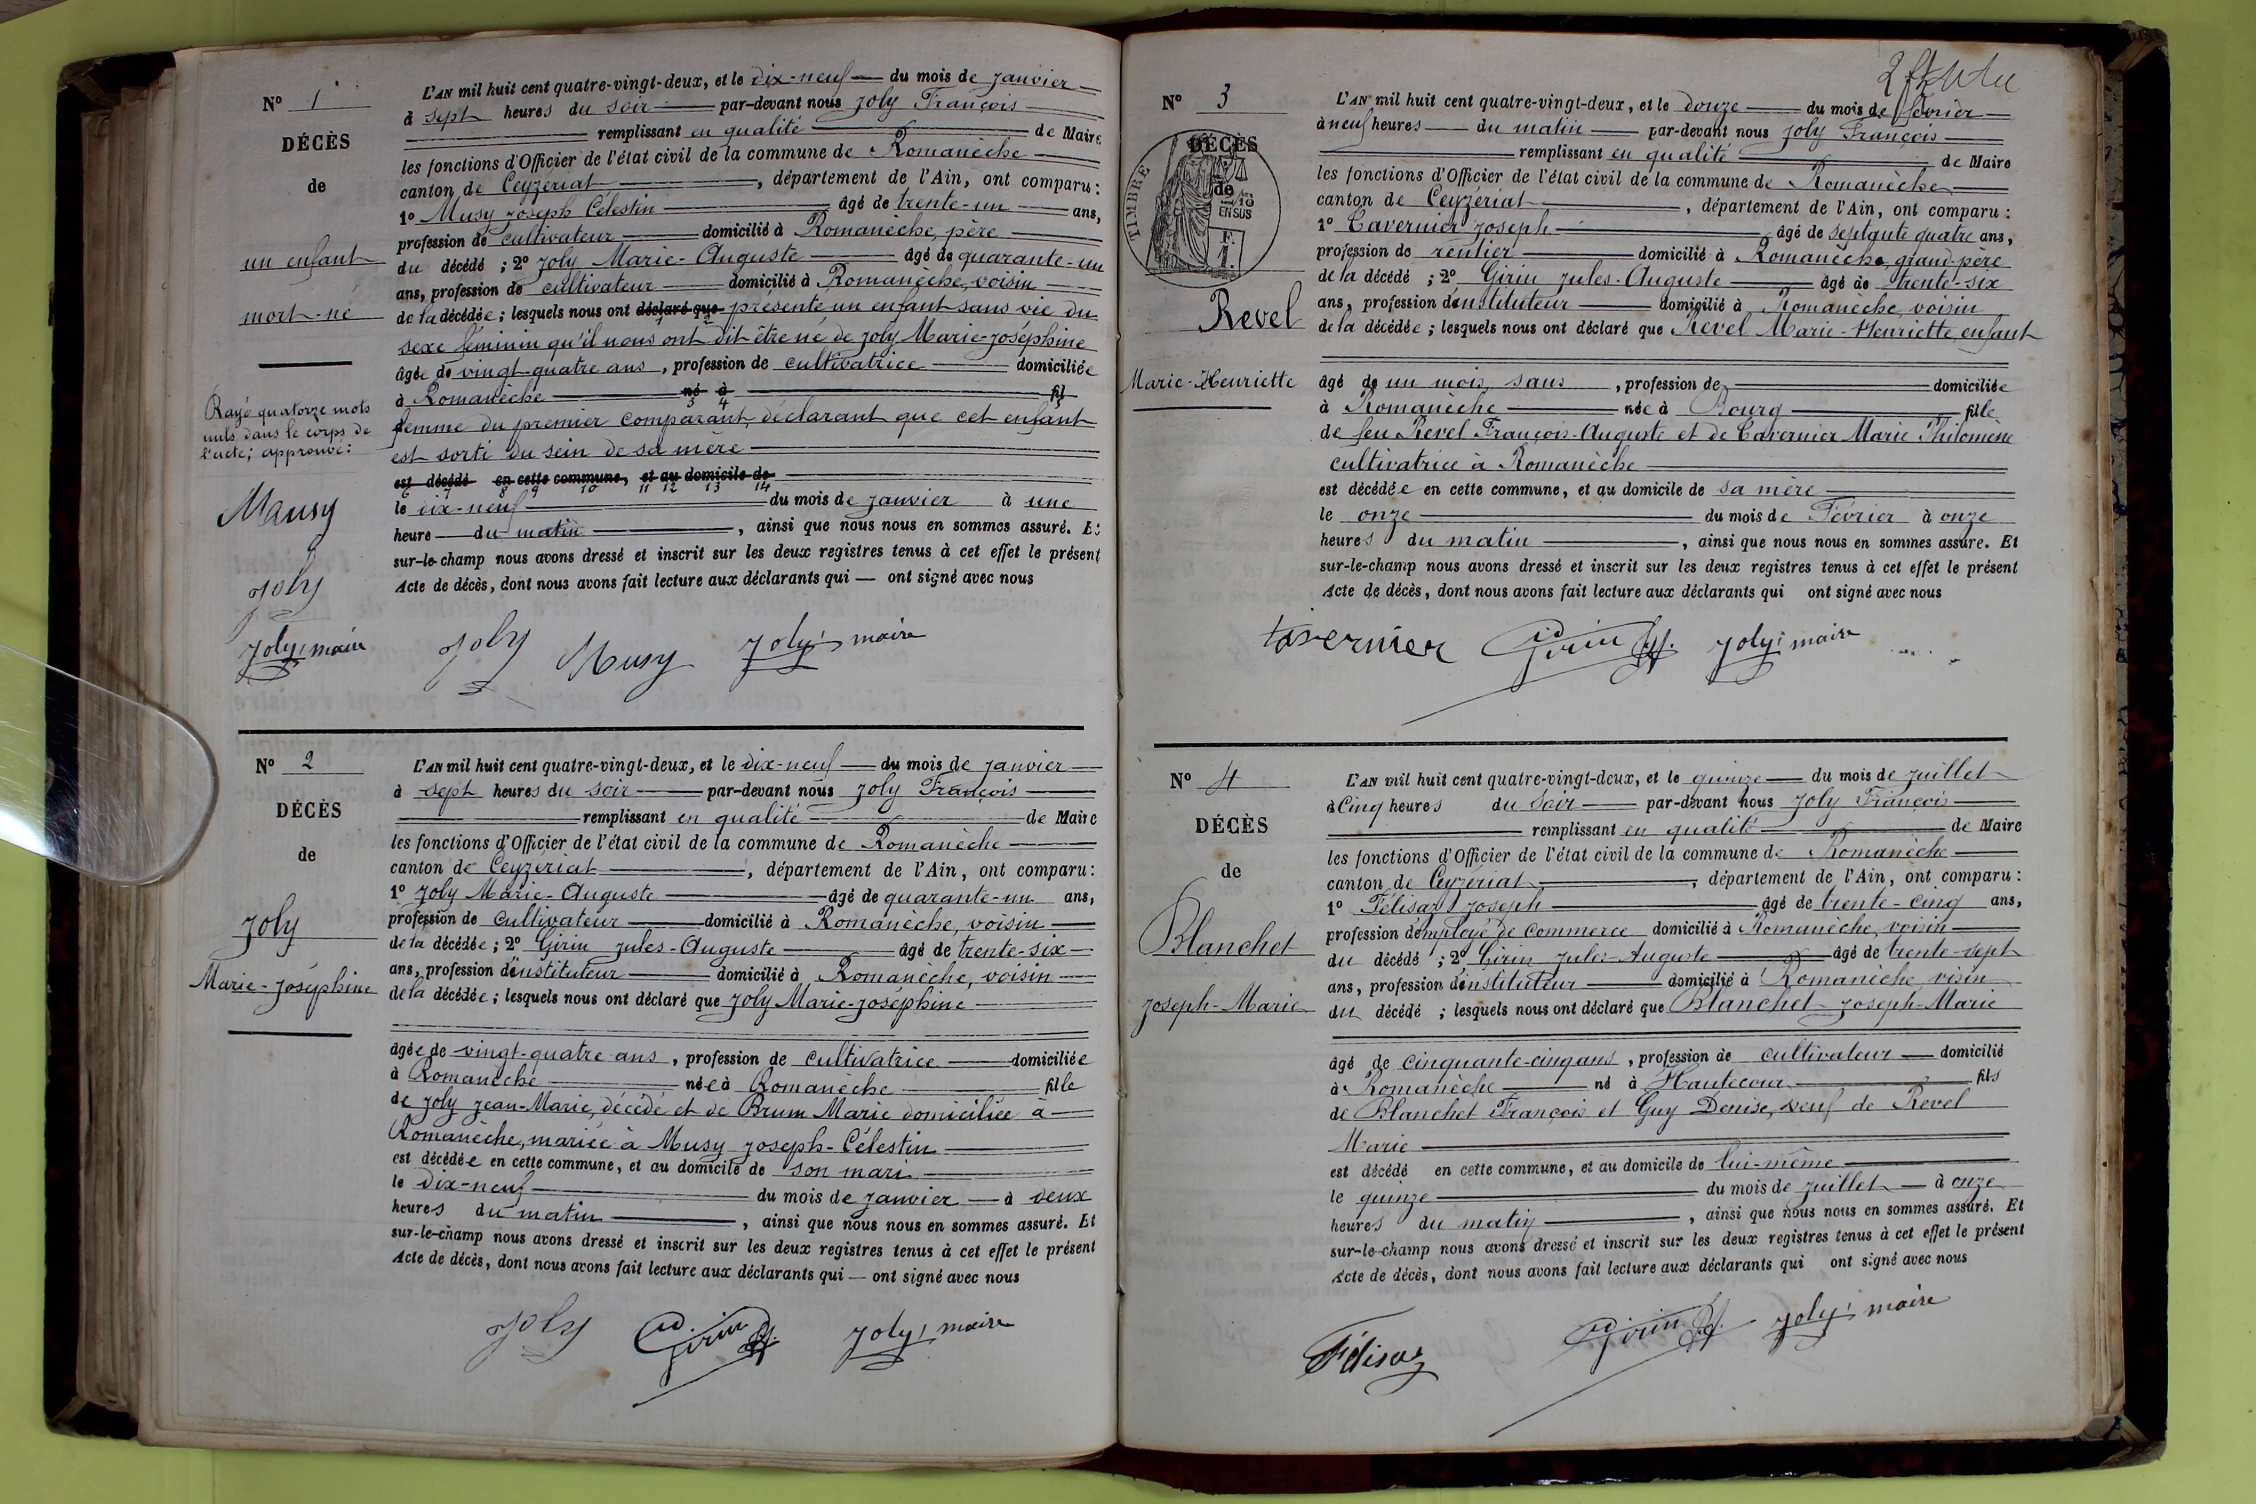 N° 1
DÉCÈS
de
un enfant
mort-né
Rayé quatorze mots
nuls dans le corps de
l'acte; approuvé:
Musy
Joly
Joly, maire
L'AN mil huit cent quatre-vingt-deux, et le dix-neuf du mois de janvier
à sept heures du soir par-devant nous Joly François
remplissant en qualité de Maire
les fonctions d'Officier de l'état civil de la commune de Romanèche
canton de Ceyzériat, département de l'Ain, ont comparu:
1° Musy Joseph Célestin âgé de trente-un ans,
profession de cultivateur domicilié à Romanèche, père
du décédé; 2° Joly Marie-Auguste âgé de quarante-un
ans, profession de cultivateur domicilié à Romanèche, voisin
de la décédée; lesquels nous ont déclaré que présenté un enfant sans vie du
sexe féminin qu'il nous ont dit être né de Joly Marie-Joséphine
âgée de vingt-quatre ans, profession de cultivatrice domiciliée
à Romanèche né à fil
3 4 5
femme du premier comparant, déclarant que cet enfant
est sorti du sein de sa mère
est décédé en cette commune, et au domicile de
6 7 8 9 10 11 12 13 14
le dix-neuf du mois de janvier à une
heure du matin, ainsi que nous nous en sommes assuré. Et
sur-le-champ nous avons dressé et inscrit sur les deux registres tenus à cet effet le présent
Acte de décès, dont nous avons fait lecture aux déclarants qui — ont signé avec nous
Joly Musy Joly, maire
N° 2
DÉCÈS
de
Joly
Marie-Joséphine
L'AN mil huit cent quatre-vingt-deux, et le dix-neuf du mois de janvier
à sept heures du soir par-devant nous Joly François
remplissant en qualité de Maire
les fonctions d'Officier de l'état civil de la commune de Romanèche
canton de Ceyzériat, département de l'Ain, ont comparu:
1° Joly Marie-Auguste âgé de quarante-un ans,
profession de cultivateur domicilié à Romanèche, voisin
de la décédée; 2° Girin Jules-Auguste âgé de trente-six
ans, profession d'instituteur domicilié à Romanèche, voisin
de la décédée; lesquels nous ont déclaré que Joly Marie-Joséphine
âgée de vingt-quatre ans, profession de cultivatrice domiciliée
à Romanèche née à Romanèche fille
de Joly Jean-Marie, décédé et de Brum Marie domiciliée à
Romanèche, mariée à Musy Joseph-Célestin
est décédée en cette commune, et au domicile de son mari
le dix-neuf du mois de janvier à deux
heures du matin, ainsi que nous nous en sommes assuré. Et
sur-le-champ nous avons dressé et inscrit sur les deux registres tenus à cet effet le présent
Acte de décès, dont nous avons fait lecture aux déclarants qui — ont signé avec nous
Joly Girin Joly, maire
N° 3
DÉCÈS
de
TIMBRE
EN SUS
Revel
Marie-Henriette
L'AN mil huit cent quatre-vingt-deux, et le douze du mois de février
à neuf heures du matin par-devant nous Joly François
remplissant en qualité de Maire
les fonctions d'Officier de l'état civil de la commune de Romanèche
canton de Ceyzériat, département de l'Ain, ont comparu:
1° Tavernier Joseph âgé de septante quatre ans,
profession de rentier domicilié à Romanèche, grand-père
de la décédé; 2° Girin Jules-Auguste âgé de trente-six
ans, profession d'instituteur domicilié à Romanèche, voisin
de la décédée; lesquels nous ont déclaré que Revel Marie-Henriette, enfant
âgé de un mois, sans, profession de domiciliée
à Romanèche née à Bourg fille
de feu Revel François-Auguste et de Tavernier Marie Philomène
cultivatrice à Romanèche
est décédée en cette commune, et au domicile de sa mère
le onze du mois de Février à onze
heures du matin, ainsi que nous nous en sommes assuré. Et
sur-le-champ nous avons dressé et inscrit sur les deux registres tenus à cet effet le présent
Acte de décès, dont nous avons fait lecture aux déclarants qui ont signé avec nous
tavernier Girin Joly, maire
N° 4
DÉCÈS
de
Blanchet
Joseph-Marie
L'AN mil huit cent quatre-vingt-deux, et le quinze du mois de juillet
à Cinq heures du soir par-devant nous Joly François
remplissant en qualité de Maire
les fonctions d'Officier de l'état civil de la commune de Romanèche
canton de Ceyzériat, département de l'Ain, ont comparu:
1° Félisaz Joseph âgé de trente-cinq ans,
profession d'employé de commerce domicilié à Romanèche, voisin
du décédé; 2° Girin Jules-Auguste âgé de trente-sept
ans, profession d'instituteur domicilié à Romanèche, visin
du décédé; lesquels nous ont déclaré que Blanchet Joseph-Marie
âgé de cinquante-cinq ans, profession de cultivateur domicilié
à Romanèche né à Hautecour fils
de Blanchet François et Guy Denise, veuf de Revel
Marie
est décédé en cette commune, et au domicile de lui-même
le quinze du mois de juillet à onze
heures du matin, ainsi que nous nous en sommes assuré. Et
sur-le-champ nous avons dressé et inscrit sur les deux registres tenus à cet effet le présent
Acte de décès, dont nous avons fait lecture aux déclarants qui ont signé avec nous
Félisaz Girin Joly, maire